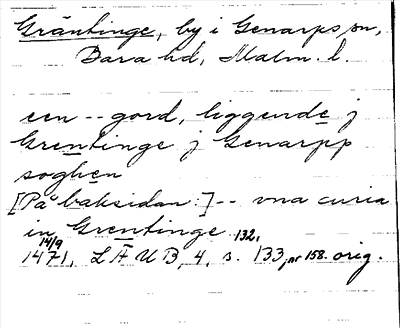 Gräntinge, by i Genarps sn,
Bara hd, Malm. l.
een -- gord, liggende j
Grentinge j Genarpp
soghen
[På baksidan:] -- vna curia
in Grentinge
14/9 1471, LÄUB, 4, s. 132, 133, nr 158. orig.